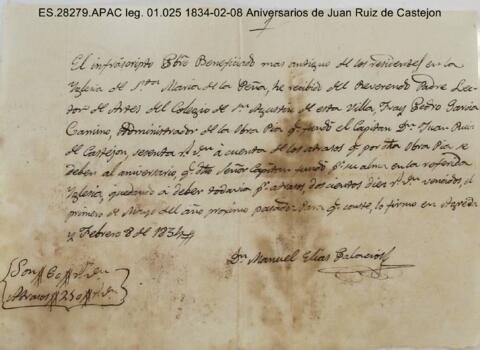 ES.28279.APAC leg. 01.025 1834-02-08 Aniversarios de Juan Ruiz de Castejon
El infrascripto Pbro Beneficiado mas antiguo de los residentes en la
Yglesia de Sta Maria de la Peña, he recibido del Reverendo Padre Lec-
tor de Artes del Colegio de Sn Agustin de esta Villa, Fray Pedro Garcia
Camino, Administrador de la Obra Pia q. fundó el Capitan Dn Juan Ruiz
de Castejon, sesenta rs. vn. á cuenta de los atrasos q. por dha Obra Pia se
deben al aniversario, q. dho Señor Capitan fundó pr su alma en la referida
Yglesia, quedando á deber todavia pr atrasos, dos cientos diez rs. vn. vencidos, el
primero de Mayo del año, proximo pasado. Para q. conste, lo firmo en Agreda
y Febrero 8 de 1834
Dn Manuel Elias Palacios
Son 60 rs. vn
Atrasos 210 rs. vn